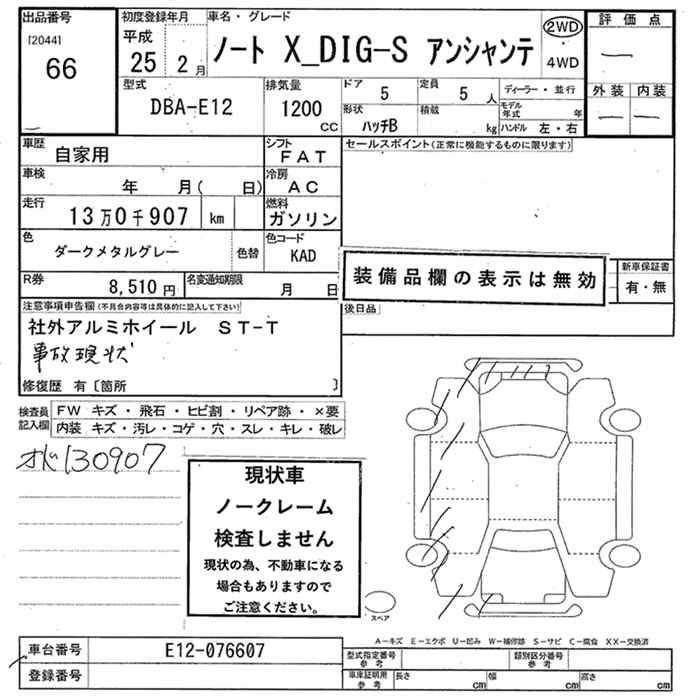 出品番号
[2044]
66
初度登録年月
平成
25 2月
車名・グレード
ノート X_DIG-S アンシャンテ
2WD
・
4WD
評価点
—
外装 内装
— —
型式
DBA-E12
排気量
1200
CC
ドア
5
定員
5 人
形状
ハッチB
積載
kg
ディーラー・並行
モデル年式 年
ハンドル 左・右
車歴
自家用
シフト
FAT
セールスポイント(正常に機能するものに限ります)
車検
年 月( 日)
冷房
AC
走行
13万0千907 km
燃料
ガソリン
色
ダークメタルグレー
色替
色コード
KAD
装備品欄の表示は無効
新車保証書
有・無
R券
8,510円
名変通知期限
月 日
後日品
注意事項申告欄(不具合内容等は具体的に記入して下さい)
社外アルミホイール ST-T
事故現状
修復歴 有〔箇所 〕
検査員記入欄
FW キズ・飛石・ヒビ割・リペア跡・×要
内装 キズ・汚レ・コゲ・穴・スレ・キレ・破レ
オド130907
現状車
ノークレーム
検査しません
現状の為、不動車になる
場合もありますので
ご注意ください。
スペア
A-キズ E-エクボ U-凹み W-補修跡 S-サビ C-腐食 XX-交換済
車台番号
E12-076607
登録番号
型式指定番号
参考
類別区分番号
参考
車庫証明用
参考
長さ cm
幅 cm
高さ cm